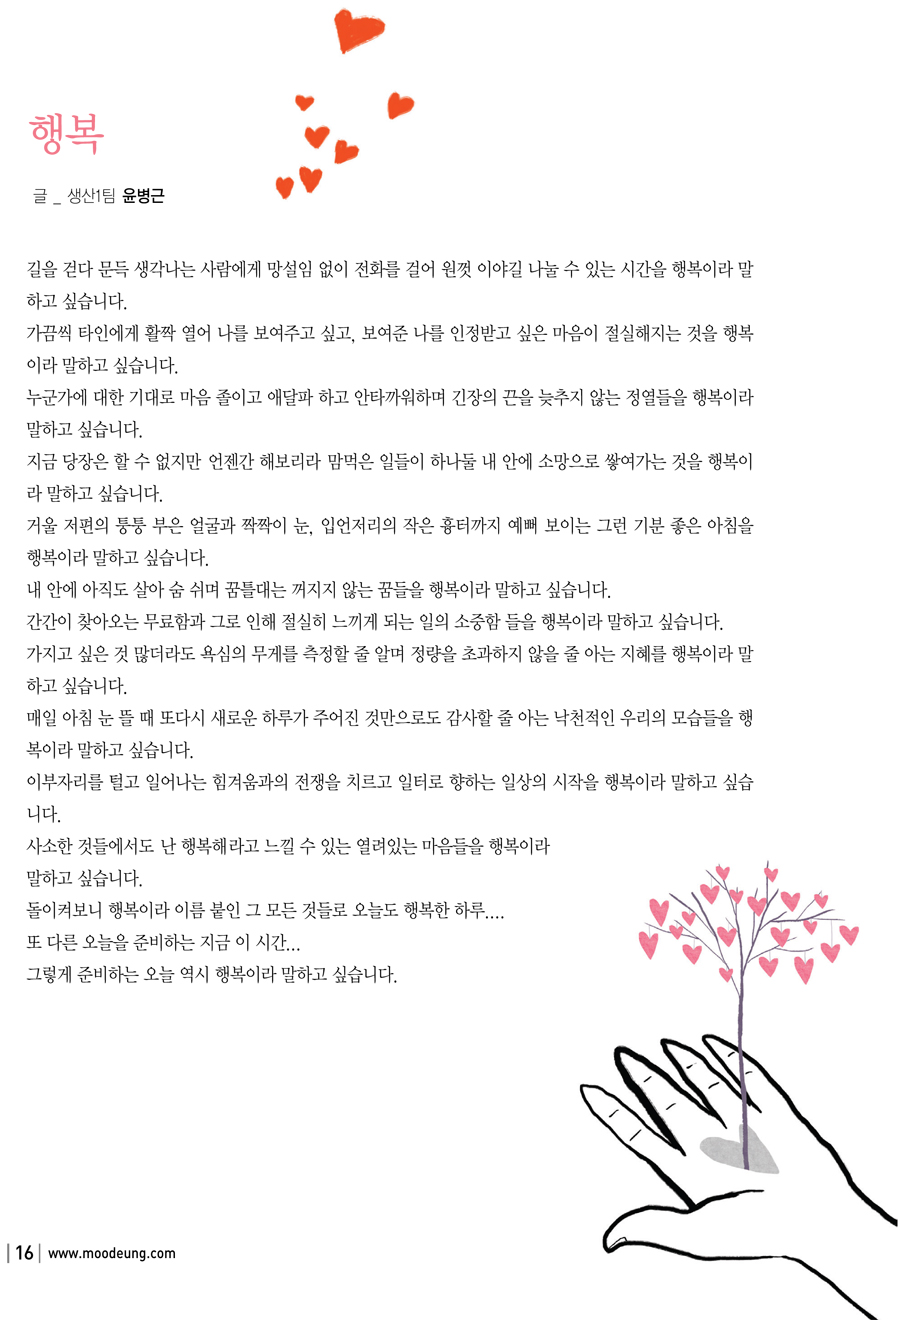 행복
글 _ 생산1팀 윤병근
길을 걷다 문득 생각나는 사람에게 망설임 없이 전화를 걸어 원껏 이야길 나눌 수 있는 시간을 행복이라 말
하고 싶습니다.
가끔씩 타인에게 활짝 열어 나를 보여주고 싶고, 보여준 나를 인정받고 싶은 마음이 절실해지는 것을 행복
이라 말하고 싶습니다.
누군가에 대한 기대로 마음 졸이고 애달파 하고 안타까워하며 긴장의 끈을 늦추지 않는 정열들을 행복이라
말하고 싶습니다.
지금 당장은 할 수 없지만 언젠간 해보리라 맘먹은 일들이 하나둘 내 안에 소망으로 쌓여가는 것을 행복이
라 말하고 싶습니다.
거울 저편의 퉁퉁 부은 얼굴과 짝짝이 눈, 입언저리의 작은 흉터까지 예뻐 보이는 그런 기분 좋은 아침을
행복이라 말하고 싶습니다.
내 안에 아직도 살아 숨 쉬며 꿈틀대는 꺼지지 않는 꿈들을 행복이라 말하고 싶습니다.
간간이 찾아오는 무료함과 그로 인해 절실히 느끼게 되는 일의 소중함 들을 행복이라 말하고 싶습니다.
가지고 싶은 것 많더라도 욕심의 무게를 측정할 줄 알며 정량을 초과하지 않을 줄 아는 지혜를 행복이라 말
하고 싶습니다.
매일 아침 눈 뜰 때 또다시 새로운 하루가 주어진 것만으로도 감사할 줄 아는 낙천적인 우리의 모습들을 행
복이라 말하고 싶습니다.
이부자리를 털고 일어나는 힘겨움과의 전쟁을 치르고 일터로 향하는 일상의 시작을 행복이라 말하고 싶습
니다.
사소한 것들에서도 난 행복해라고 느낄 수 있는 열려있는 마음들을 행복이라
말하고 싶습니다.
돌이켜보니 행복이라 이름 붙인 그 모든 것들로 오늘도 행복한 하루....
또 다른 오늘을 준비하는 지금 이 시간...
그렇게 준비하는 오늘 역시 행복이라 말하고 싶습니다.
16 www.moodeung.com